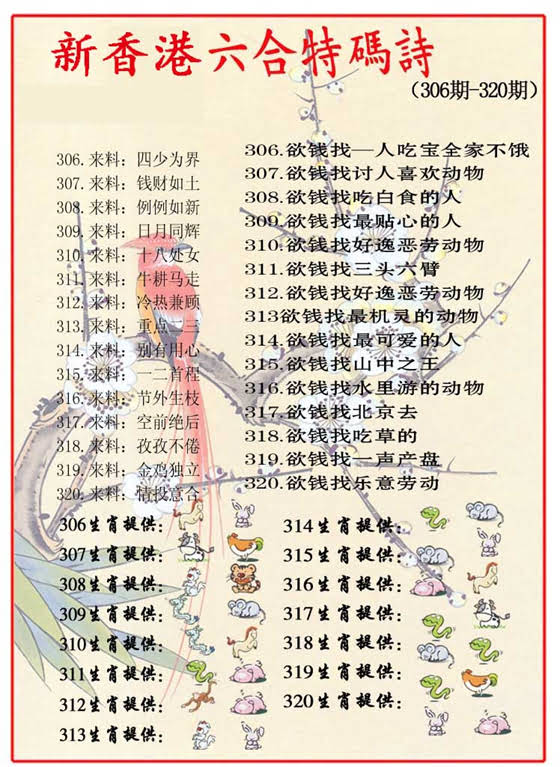 新香港六合特碼詩
（306期-320期）
306.来料：四少为界
307.来料：钱财如土
308.来料：例例如新
309.来料：日月同辉
310.来料：十八处女
311.来料：牛耕马走
312.来料：冷热兼顾
313.来料：重点二三
314.来料：别有用心
315.来料：一二首程
316.来料：节外生枝
317.来料：空前绝后
318.来料：孜孜不倦
319.来料：金鸡独立
320.来料：情投意合
306.欲钱找一人吃宝全家不饿
307.欲钱找讨人喜欢动物
308.欲钱找吃白食的人
309.欲钱找最贴心的人
310.欲钱找好逸恶劳动物
311.欲钱找三头六臂
312.欲钱找好逸恶劳动物
313欲钱找最机灵的动物
314.欲钱找最可爱的人
315.欲钱找山中之王
316.欲钱找水里游的动物
317.欲钱找北京去
318.欲钱找吃草的
319.欲钱找一声产盘
320.欲钱找乐意劳动
306生肖提供：
307生肖提供：
308生肖提供：
309生肖提供：
310生肖提供：
311生肖提供：
312生肖提供：
313生肖提供：
314生肖提供：
315生肖提供：
316生肖提供：
317生肖提供：
318生肖提供：
319生肖提供：
320生肖提供：